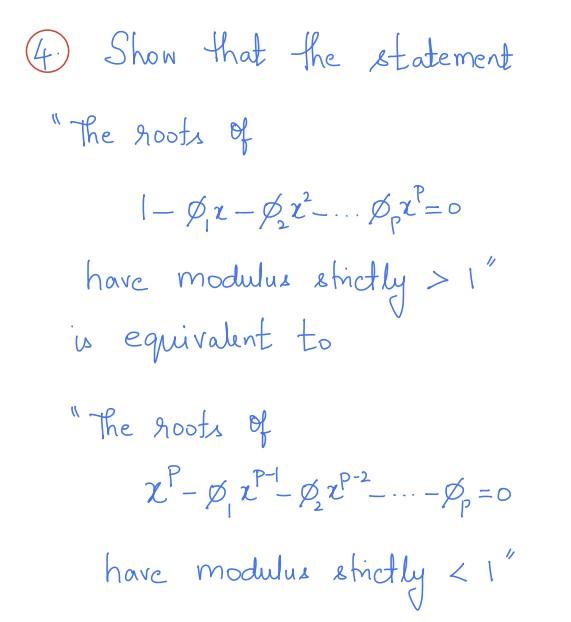 4. Show that the statement
"The roots of
1 - ∅₁x - ∅₂x² - ... ∅ₚxᵖ = 0
have modulus strictly > 1"
is equivalent to
"The roots of
xᵖ - ∅₁xᵖ⁻¹ - ∅₂xᵖ⁻² - ... - ∅ₚ = 0
have modulus strictly < 1"